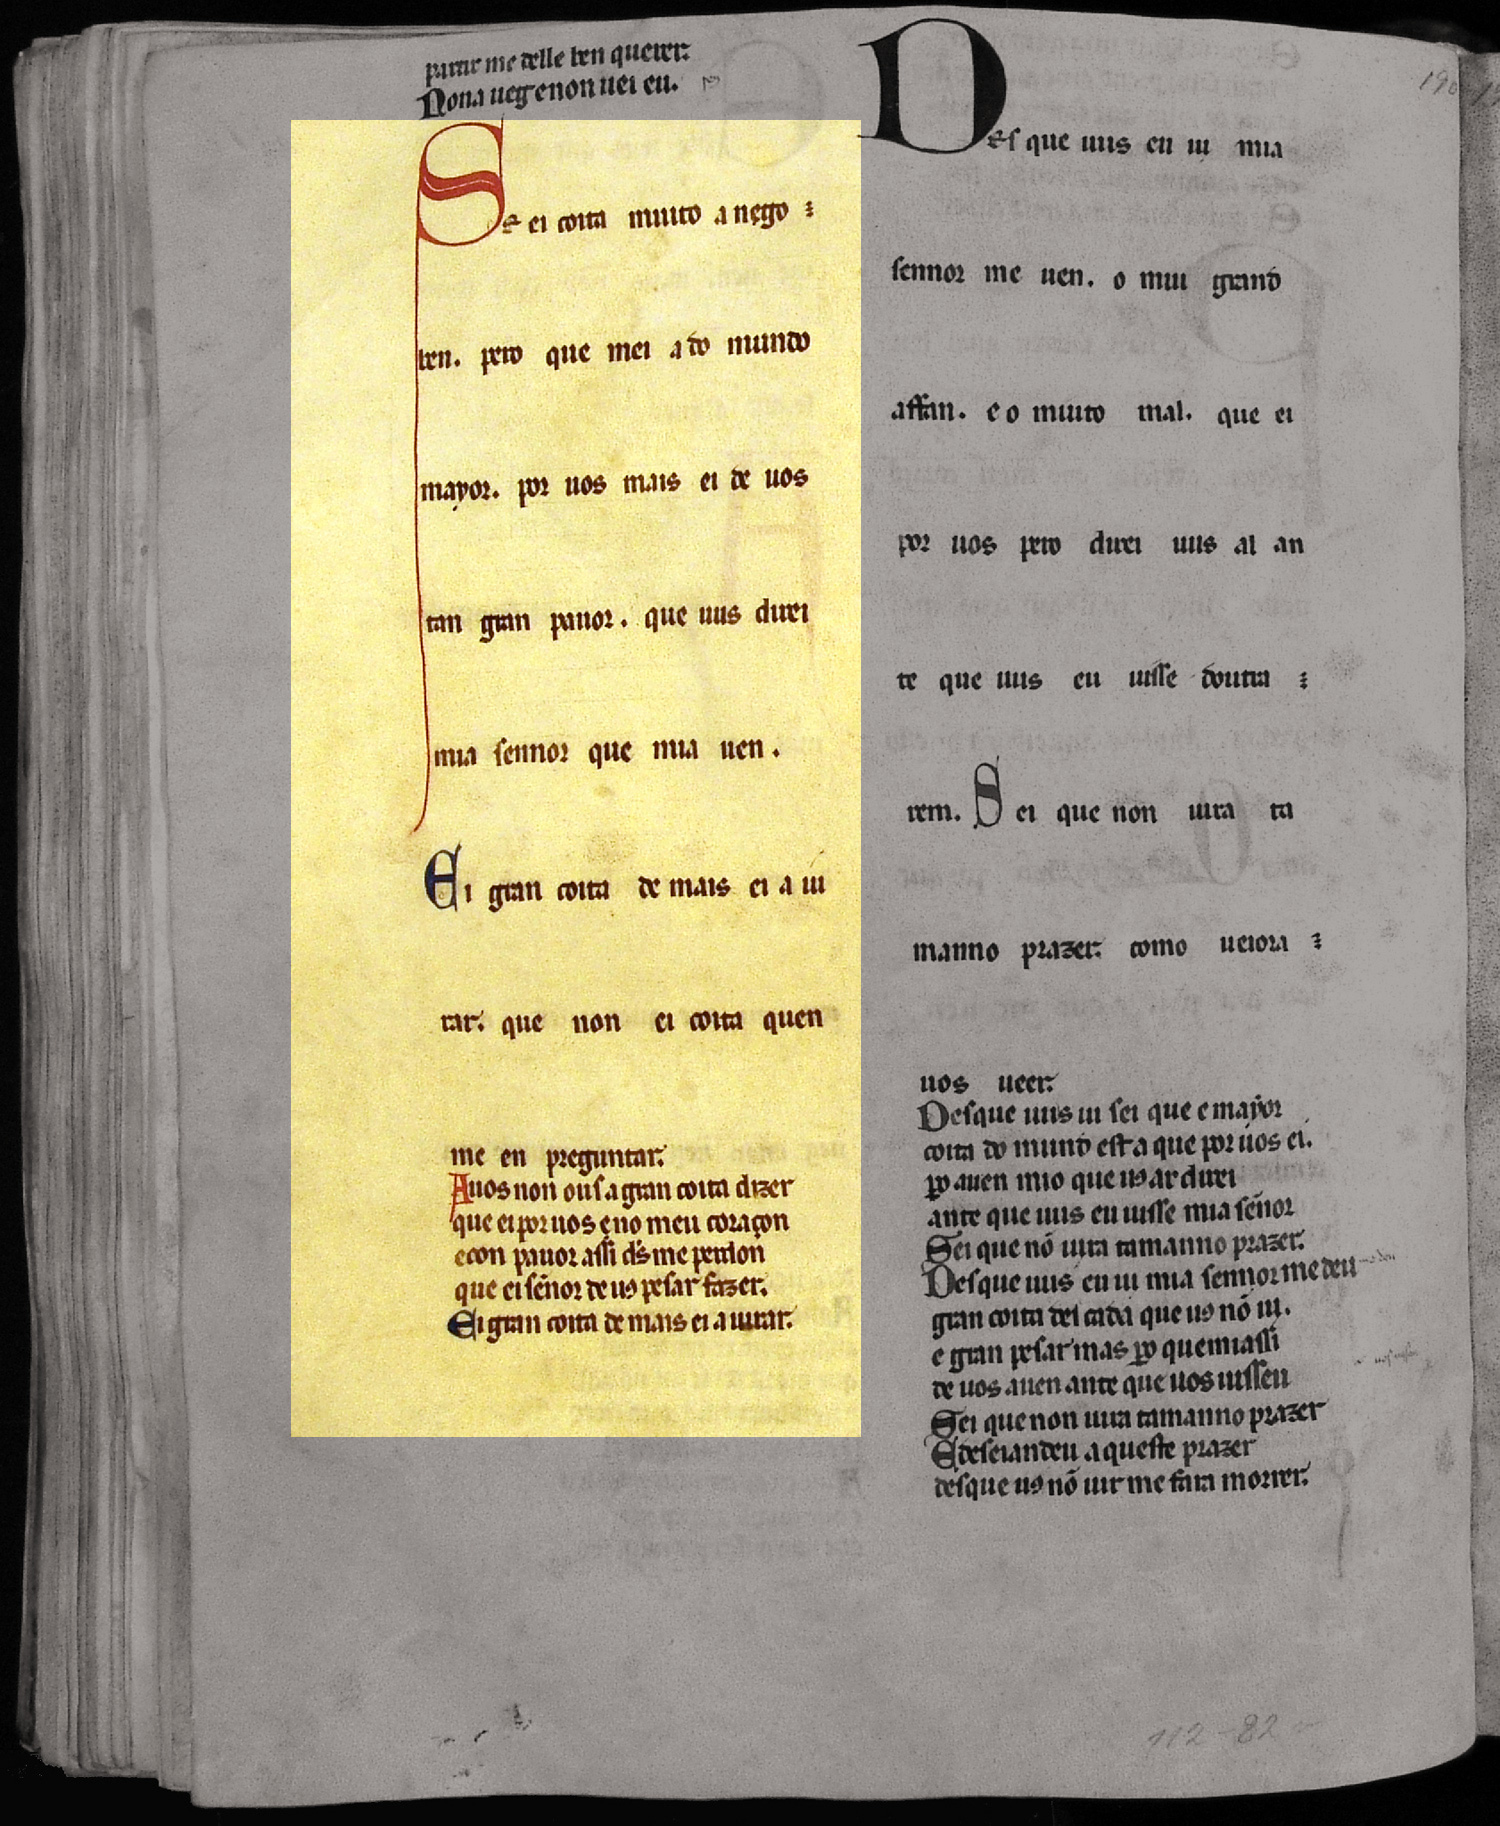 partir me delle ben querer.
Nona uegenon uei eu.
Se ei coita muito a nego
ben. pero que mei a do mundo
mayor. por uos mais ei de uos
tan gran pauor. que uus direi
mia sennor que mia uen.
Ei gran coita de mais ei a iu
rar. que non ei coita quen
me en preguntar.
Auos non ousa gran coita dizer
que ei por uos eno meu coraçon
econ pauor assi ds̄ me perdon
que ei sēnor de uꝯ pesar fazer.
Ei gran coita de mais ei a iurar.
Des que uus eu ui mia
sennor me uen. o mui grand
affan. e o muito mal. que ei
por uos pero direi uus al an
te que uus eu uisse doutra
rem. Sei que non uira ta
manno prazer. como ueiora
uos ueer.
Desque uus ui sei que e mayor
coita do mundo esta que por uos ei.
ꝑo auen mio que uꝯ ar direi
ante que uus eu uisse mia sēnor
Sei que nō uira tamanno prazer.
Desque uus eu ui mia sennor me deu
gran coita dei cada que uꝯ nō ui.
e gran pesar mas ꝑo quemiassi
de uos auen ante que uos uissen
Sei que non uira tamanno prazer
E deseiandeu a queste prazer
desque uꝯ nō uir me fara morrer.
190
112-82